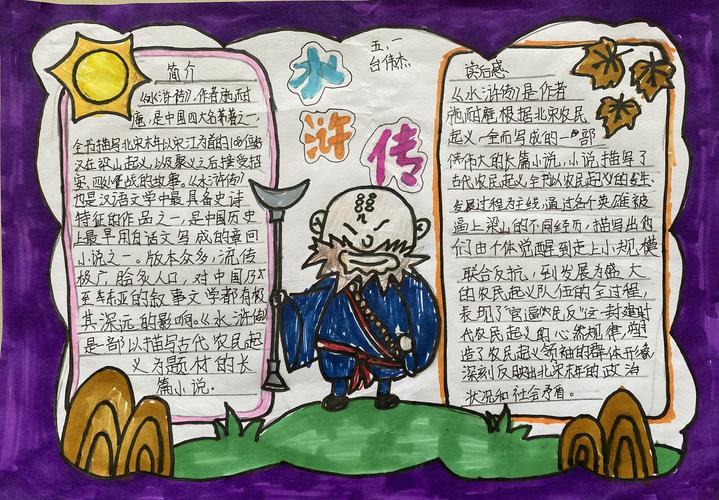 水
浒
传
五、一
台伟杰
简介
《水浒传》,作者施耐
庵,是中国四大名著之一,
全书描写北宋末年以宋江为首的108位好
汉在梁山起义,以及聚义之后接受招
安、四处征战的故事。《水浒传》
也是汉语文学中最具备史诗
特征的作品之一,是中国历史
上最早用白话文写成的章回
小说之一。版本众多,流传
极广,脍炙人口,对中国乃
至东亚的叙事文学都有极
其深远的影响。《水浒传》
是一部以描写古代农民起
义为题材的长
篇小说.
读后感
《水浒传》是作者
施耐庵根据北宋农民
起义一全而写成的一部
伟大的长篇小说,小说描写了
古代农民起义全书以农民起义的发生、
发展过程为主线,通过各个英雄被
逼上梁山的不同经历,描写出他
们由个体觉醒到走上小规模
联合反抗,到发展为盛大
的农民起义队伍的全过程,
表现了"官逼民反"这一封建时
代农民起义的必然规律,塑
造了农民起义领袖的群体形象,
深刻反映出北宋末年的政治
状况和社会矛盾。